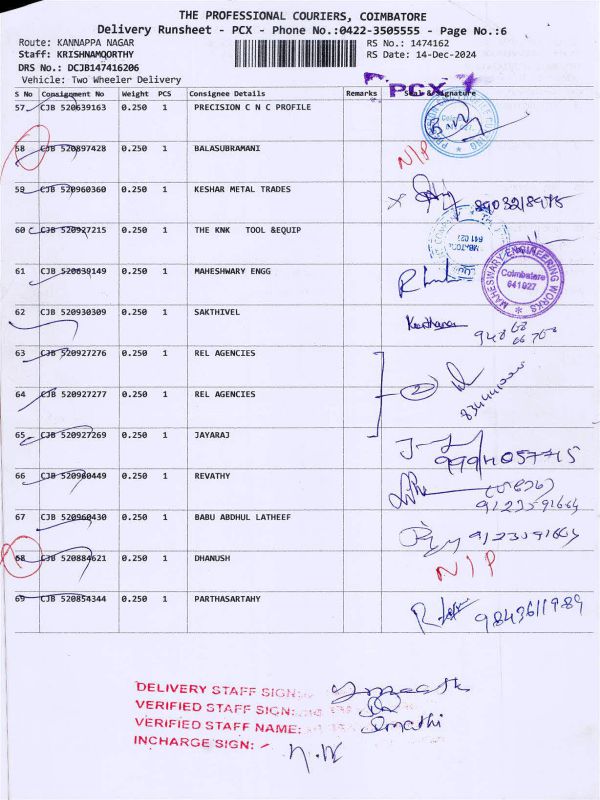 THE PROFESSIONAL COURIERS, COIMBATORE
Delivery Runsheet - PCX - Phone No.:0422-3505555 - Page No.:6
Route: KANNAPPA NAGAR RS No.: 1474162
Staff: KRISHNAMOORTHY RS Date: 14-Dec-2024
DRS No.: DCJB147416206
Vehicle: Two Wheeler Delivery
PCX
S No Consignment No Weight PCS Consignee Details Remarks Seal & Signature
57 CJB 520639163 0.250 1 PRECISION C N C PROFILE
58 CJB 520897428 0.250 1 BALASUBRAMANI N/P
59 CJB 520960360 0.250 1 KESHAR METAL TRADES
60 CJB 520927215 0.250 1 THE KNK TOOL &EQUIP
61 CJB 520639149 0.250 1 MAHESHWARY ENGG
MAHESWARY ENGINEERING WORKS
Coimbatore
641027
62 CJB 520930309 0.250 1 SAKTHIVEL
63 CJB 520927276 0.250 1 REL AGENCIES
64 CJB 520927277 0.250 1 REL AGENCIES 2
65 CJB 520927269 0.250 1 JAYARAJ
66 CJB 520960449 0.250 1 REVATHY
9123591664
67 CJB 520960430 0.250 1 BABU ABDHUL LATHEEF 9123591664
68 CJB 520884621 0.250 1 DHANUSH N/P
69 CJB 520854344 0.250 1 PARTHASARTAHY 9843611989
DELIVERY STAFF SIGN:
VERIFIED STAFF SIGN:
VERIFIED STAFF NAME:
INCHARGE SIGN: